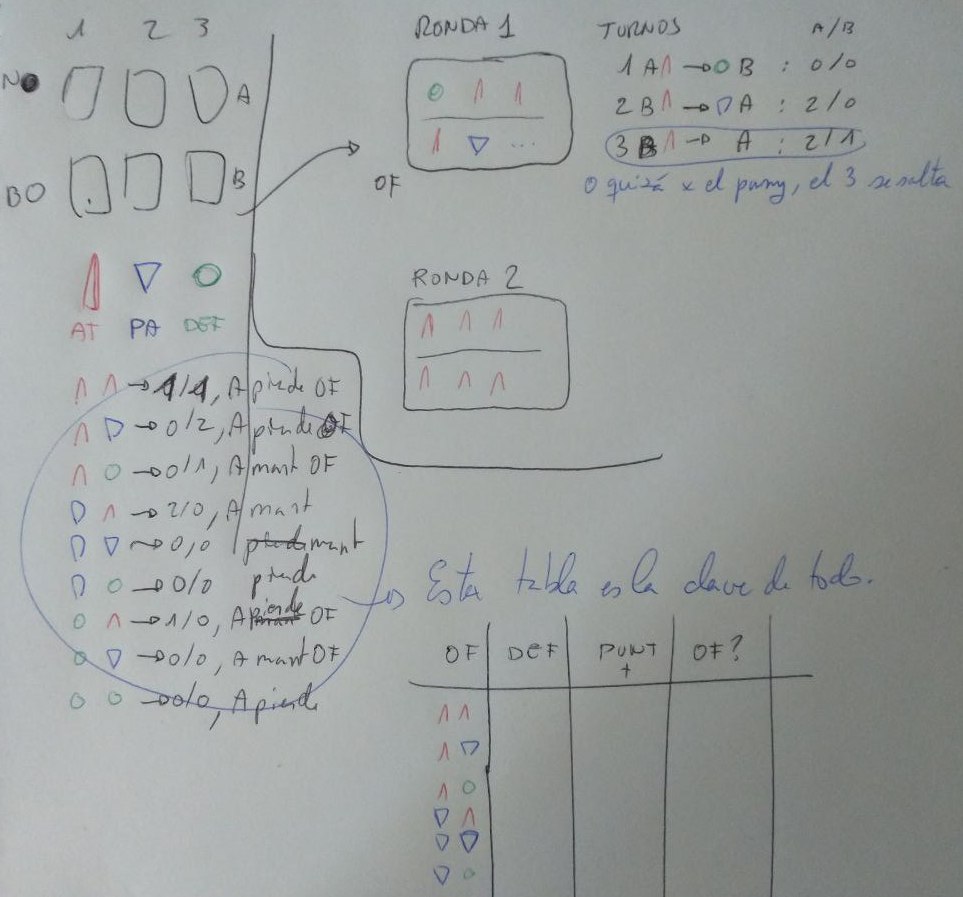 1 2 3
NO
A
BO
B
AT PA DEF
→ 1/1, A pierde OF
→ 0/2, A pierde OF
→ 0/1, A mant OF
→ 2/0, A mant
→ 0/0 mant
→ 0/0 pierde
→ 1/0, A pierde OF
→ 0/0, A mant OF
→ 0/0, A pierde
RONDA 1
...
OF
TURNOS A/B
1 A → B : 0/0
2 B → A : 2/0
3 B → A : 2/1
O quizá x el , el 3 se salta
RONDA 2
→ Esta tabla es la clave de todo.
OF DEF PUNT + OF?